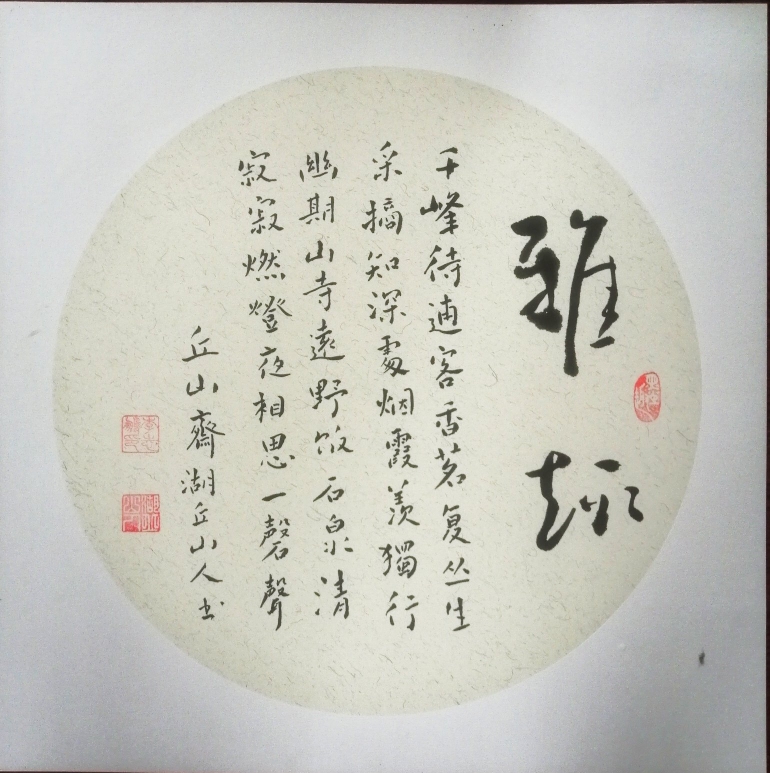 雅趣
千峰待逋客香茗复丛生
采摘知深處烟霞羡獨行
幽期山寺遠野饭石泉清
寂寂燃燈夜相思一磬聲
丘山齋湖丘山人书